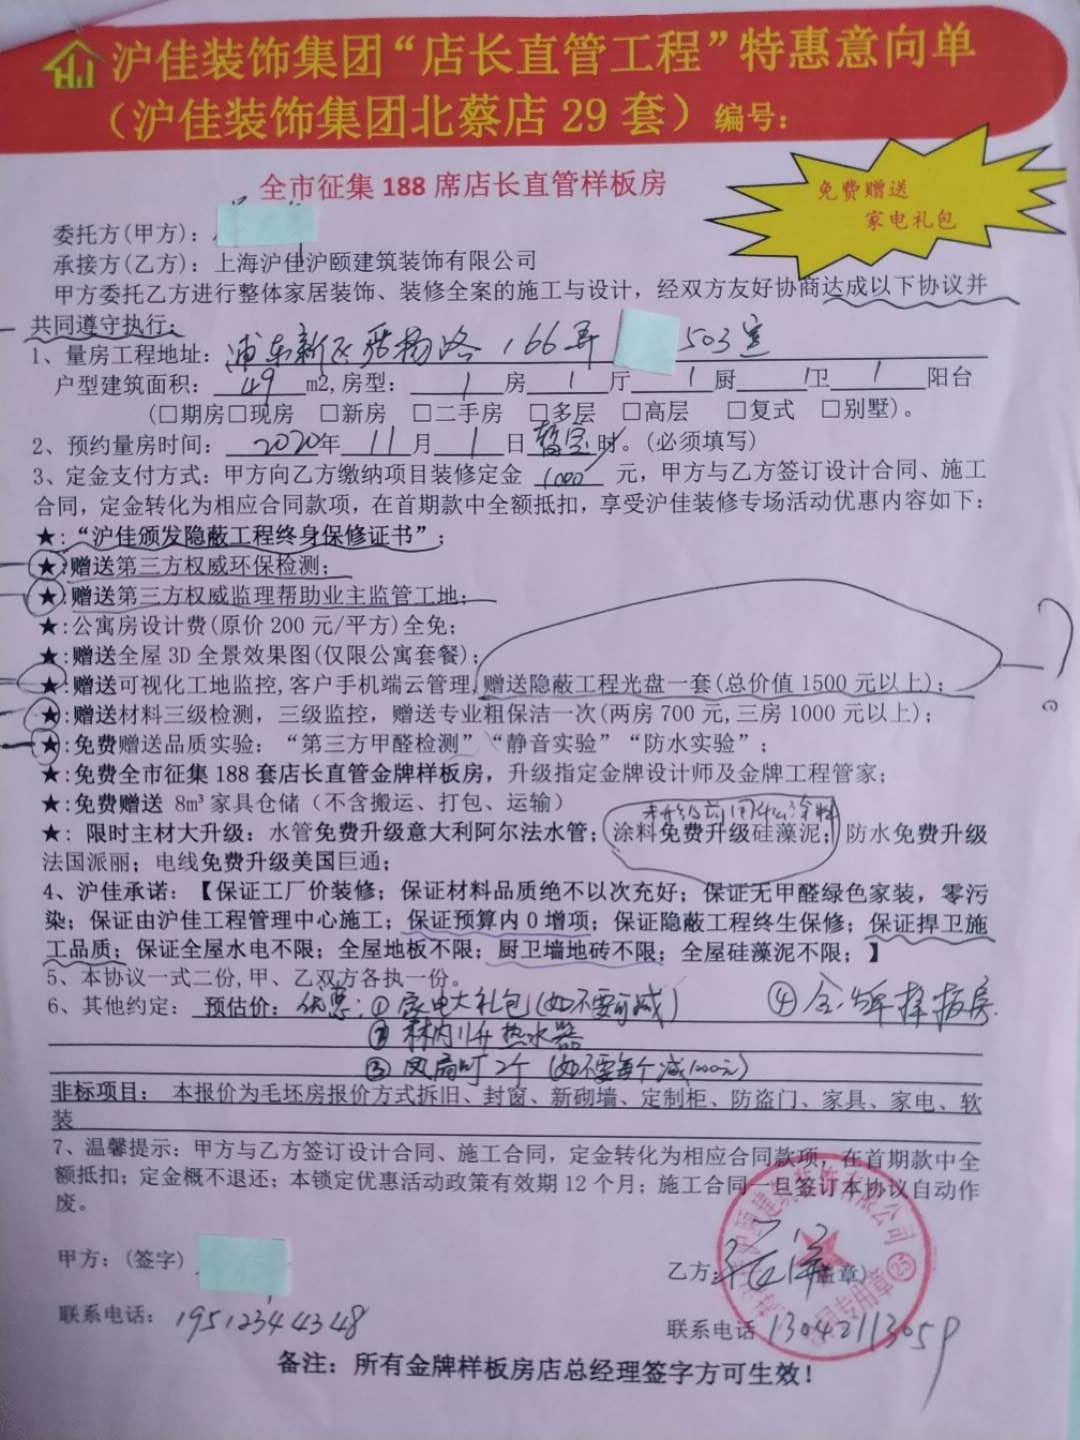 沪佳装饰集团“店长直管工程”特惠意向单
（沪佳装饰集团北蔡店 29 套）编号：
全市征集 188 席店长直管样板房
免费赠送
家电礼包
委托方(甲方)：
承接方(乙方)：上海沪佳沪颐建筑装饰有限公司
甲方委托乙方进行整体家居装饰、装修全案的施工与设计，经双方友好协商达成以下协议并
共同遵守执行：
1、量房工程地址：浦东新区张杨路 166弄 503室
户型建筑面积：49 m2,房型：1房1厅1厨1卫1阳台
(□期房□现房 □新房 □二手房 □多层 □高层 □复式 □别墅)。
2、预约量房时间：2020年11月1日暂定时。(必须填写)
3、定金支付方式：甲方向乙方缴纳项目装修定金 1000 元，甲方与乙方签订设计合同、施工
合同，定金转化为相应合同款项，在首期款中全额抵扣，享受沪佳装修专场活动优惠内容如下：
★:“沪佳颁发隐蔽工程终身保修证书”；
★:赠送第三方权威环保检测；
★:赠送第三方权威监理帮助业主监管工地；
★:公寓房设计费(原价 200 元/平方)全免；
★:赠送全屋 3D 全景效果图(仅限公寓套餐)；
★:赠送可视化工地监控,客户手机端云管理,赠送隐蔽工程光盘一套(总价值 1500 元以上)；
★:赠送材料三级检测，三级监控，赠送专业粗保洁一次(两房 700 元,三房 1000 元以上)；
★:免费赠送品质实验：“第三方甲醛检测”“静音实验”“防水实验”；
★:免费全市征集 188 套店长直管金牌样板房，升级指定金牌设计师及金牌工程管家；
★:免费赠送 8m³家具仓储（不含搬运、打包、运输）
未升级前用什么涂料
★: 限时主材大升级：水管免费升级意大利阿尔法水管；涂料免费升级硅藻泥；防水免费升级
法国派丽；电线免费升级美国巨通；
4、沪佳承诺：【保证工厂价装修；保证材料品质绝不以次充好；保证无甲醛绿色家装，零污
染；保证由沪佳工程管理中心施工；保证预算内 0 增项；保证隐蔽工程终生保修；保证捍卫施
工品质；保证全屋水电不限；全屋地板不限；厨卫墙地砖不限；全屋硅藻泥不限；】
5、本协议一式二份,甲、乙双方各执一份。
6、其他约定：预估价：优惠：①家电大礼包(如不要可减) ④全
②林内11升热水器
③风扇灯2个(如不要每个减1000元)
非标项目： 本报价为毛坯房报价方式拆旧、封窗、新砌墙、定制柜、防盗门、家具、家电、软
装
7、温馨提示：甲方与乙方签订设计合同、施工合同，定金转化为相应合同款项，在首期款中全
额抵扣；定金概不退还；本锁定优惠活动政策有效期 12 个月；施工合同一旦签订本协议自动作
废。
甲方：(签字)
乙方： 盖章)
联系电话：19512344348
联系电话 13042113059
备注：所有金牌样板房店总经理签字方可生效！